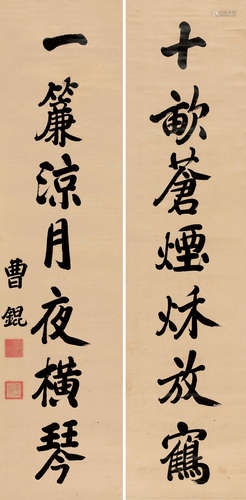 十畝蒼煙秌放鶴
一簾涼月夜橫琴
曹錕